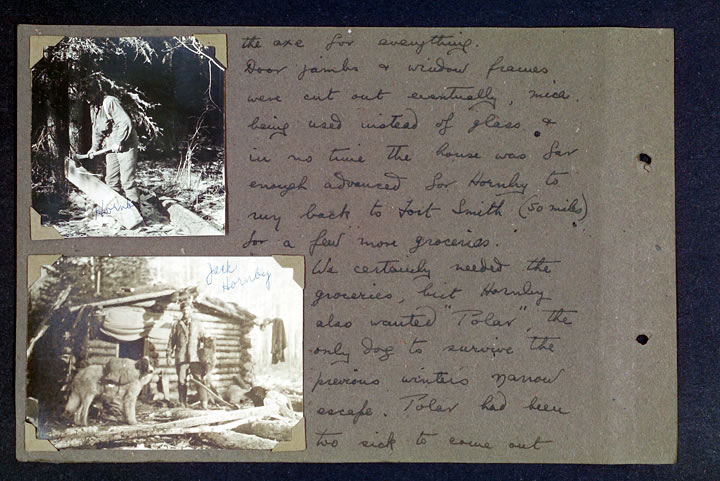 the axe for everything.
Door jambs & window frames
were cut out eventually, mica
being used instead of glass &
in no time the house was far
enough advanced for Hornby to
run back to Fort Smith (50 miles)
for a few "more groceries."
We certainly needed the
groceries, but Hornby
also wanted "Polar", the
only dog to survive the
previous winters narrow
escape. Polar had been
too sick to come out
Hornby
Jack
Hornby